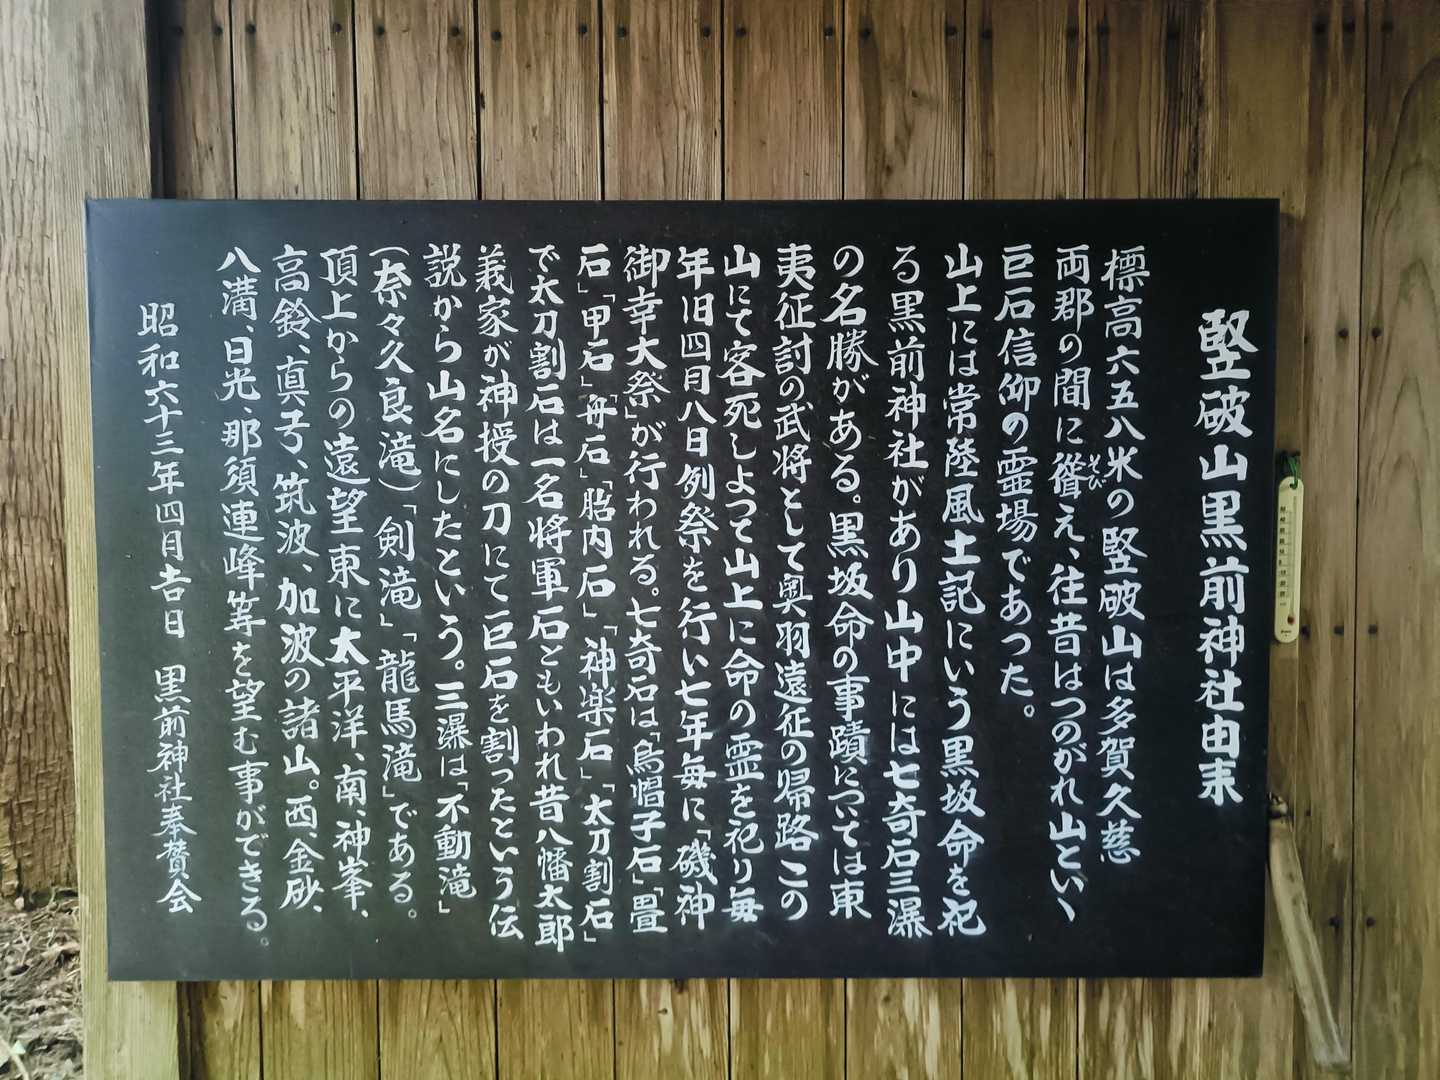 竪破山黒前神社由来
標高六五八米の竪破山は多賀久慈
両郡の間に聳え、往昔はつのがれ山といゝ
そび
巨石信仰の霊場であつた。
山上には常陸風土記にいう黒坂命を祀
る黒前神社があり山中には七奇石三瀑
の名勝がある。黒坂命の事蹟については東
夷征討の武将として奥羽遠征の帰路この
山にて客死しよつて山上に命の霊を祀り毎
年旧四月八日例祭を行い七年毎に「磯神
御幸大祭」が行われる。七奇石は「烏帽子石」「畳
石」「甲石」「舟石」「胎内石」「神楽石」「太刀割石」
で太刀割石は一名将軍石ともいわれ昔八幡太郎
義家が神授の刀にて巨石を割ったという伝
説から山名にしたという。三瀑は「不動滝」
（奈々久良滝）「剣滝」「龍馬滝」である。
頂上からの遠望東に太平洋、南、神峯、
高鈴、真弓、筑波、加波の諸山。西、金砂、
八溝、日光、那須連峰等を望む事ができる。
昭和六十三年四月吉日 黒前神社奉賛会